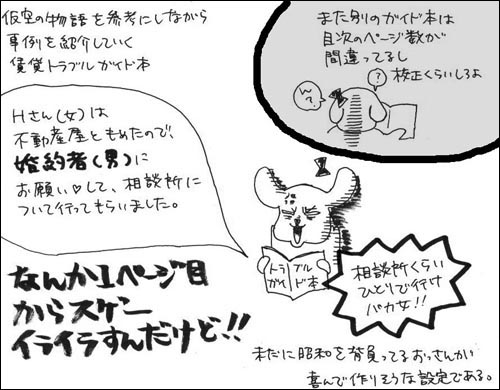 仮空の物語を参考にしながら
事例を紹介していく
賃貸トラブルガイド本
また別のガイド本は
目次のページ数が
間違ってるし
校正くらいしろよ
?
ん?
Hさん(女)は
不動産屋ともめたので、
婚約者(男)に
お願い♡して、相談所に
ついて行ってもらいました。
トラブル
ガイド本
なんか1ページ目
からスゲー
イライラすんだけど!!
相談所くらい
ひとりで行け
バカ女!!
未だに昭和を背負ってるおっさんが
喜んで作りそうな設定である。